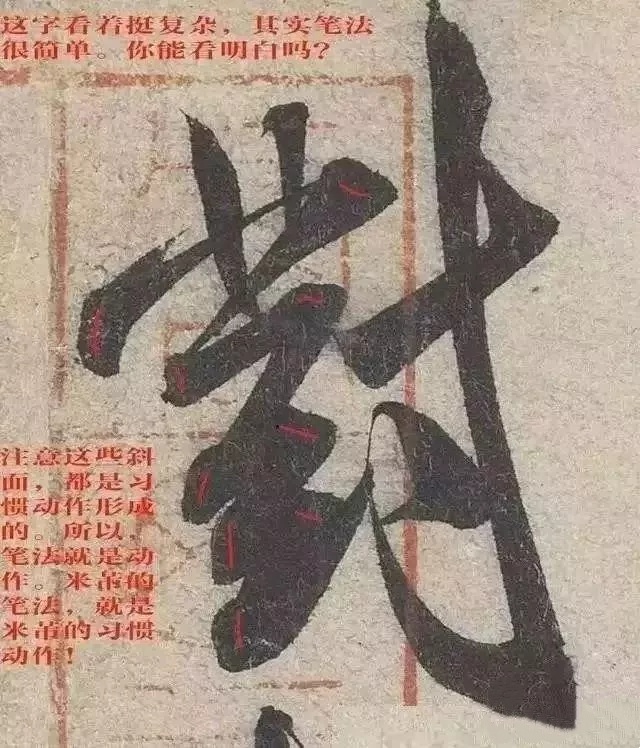 这字看着挺复杂，其实笔法
很简单。你能看明白吗？
對
注意这些斜
面，都是习
惯动作形成
的。所以，
笔法就是动
作。米芾的
笔法，就是
米芾的习惯
动作！